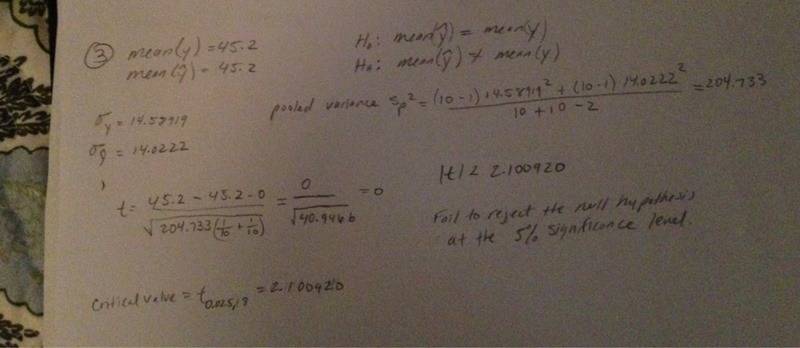 ③ mean(y) = 45.2
mean(ŷ) = 45.2
H₀: mean(ŷ) = mean(y)
Hₐ: mean(ŷ) ≠ mean(y)
σy = 14.58919
σŷ = 14.0222
pooled variance Sp² = (10-1)14.58919² + (10-1)14.0222² / 10+10-2 = 204.733
t = 45.2 - 45.2 - 0 / √204.733(1/10 + 1/10) = 0 / √40.9466 = 0
|t| < 2.100920
Fail to reject the null hypothesis
at the 5% significance level.
critical value = t0.025,18 = 2.100920